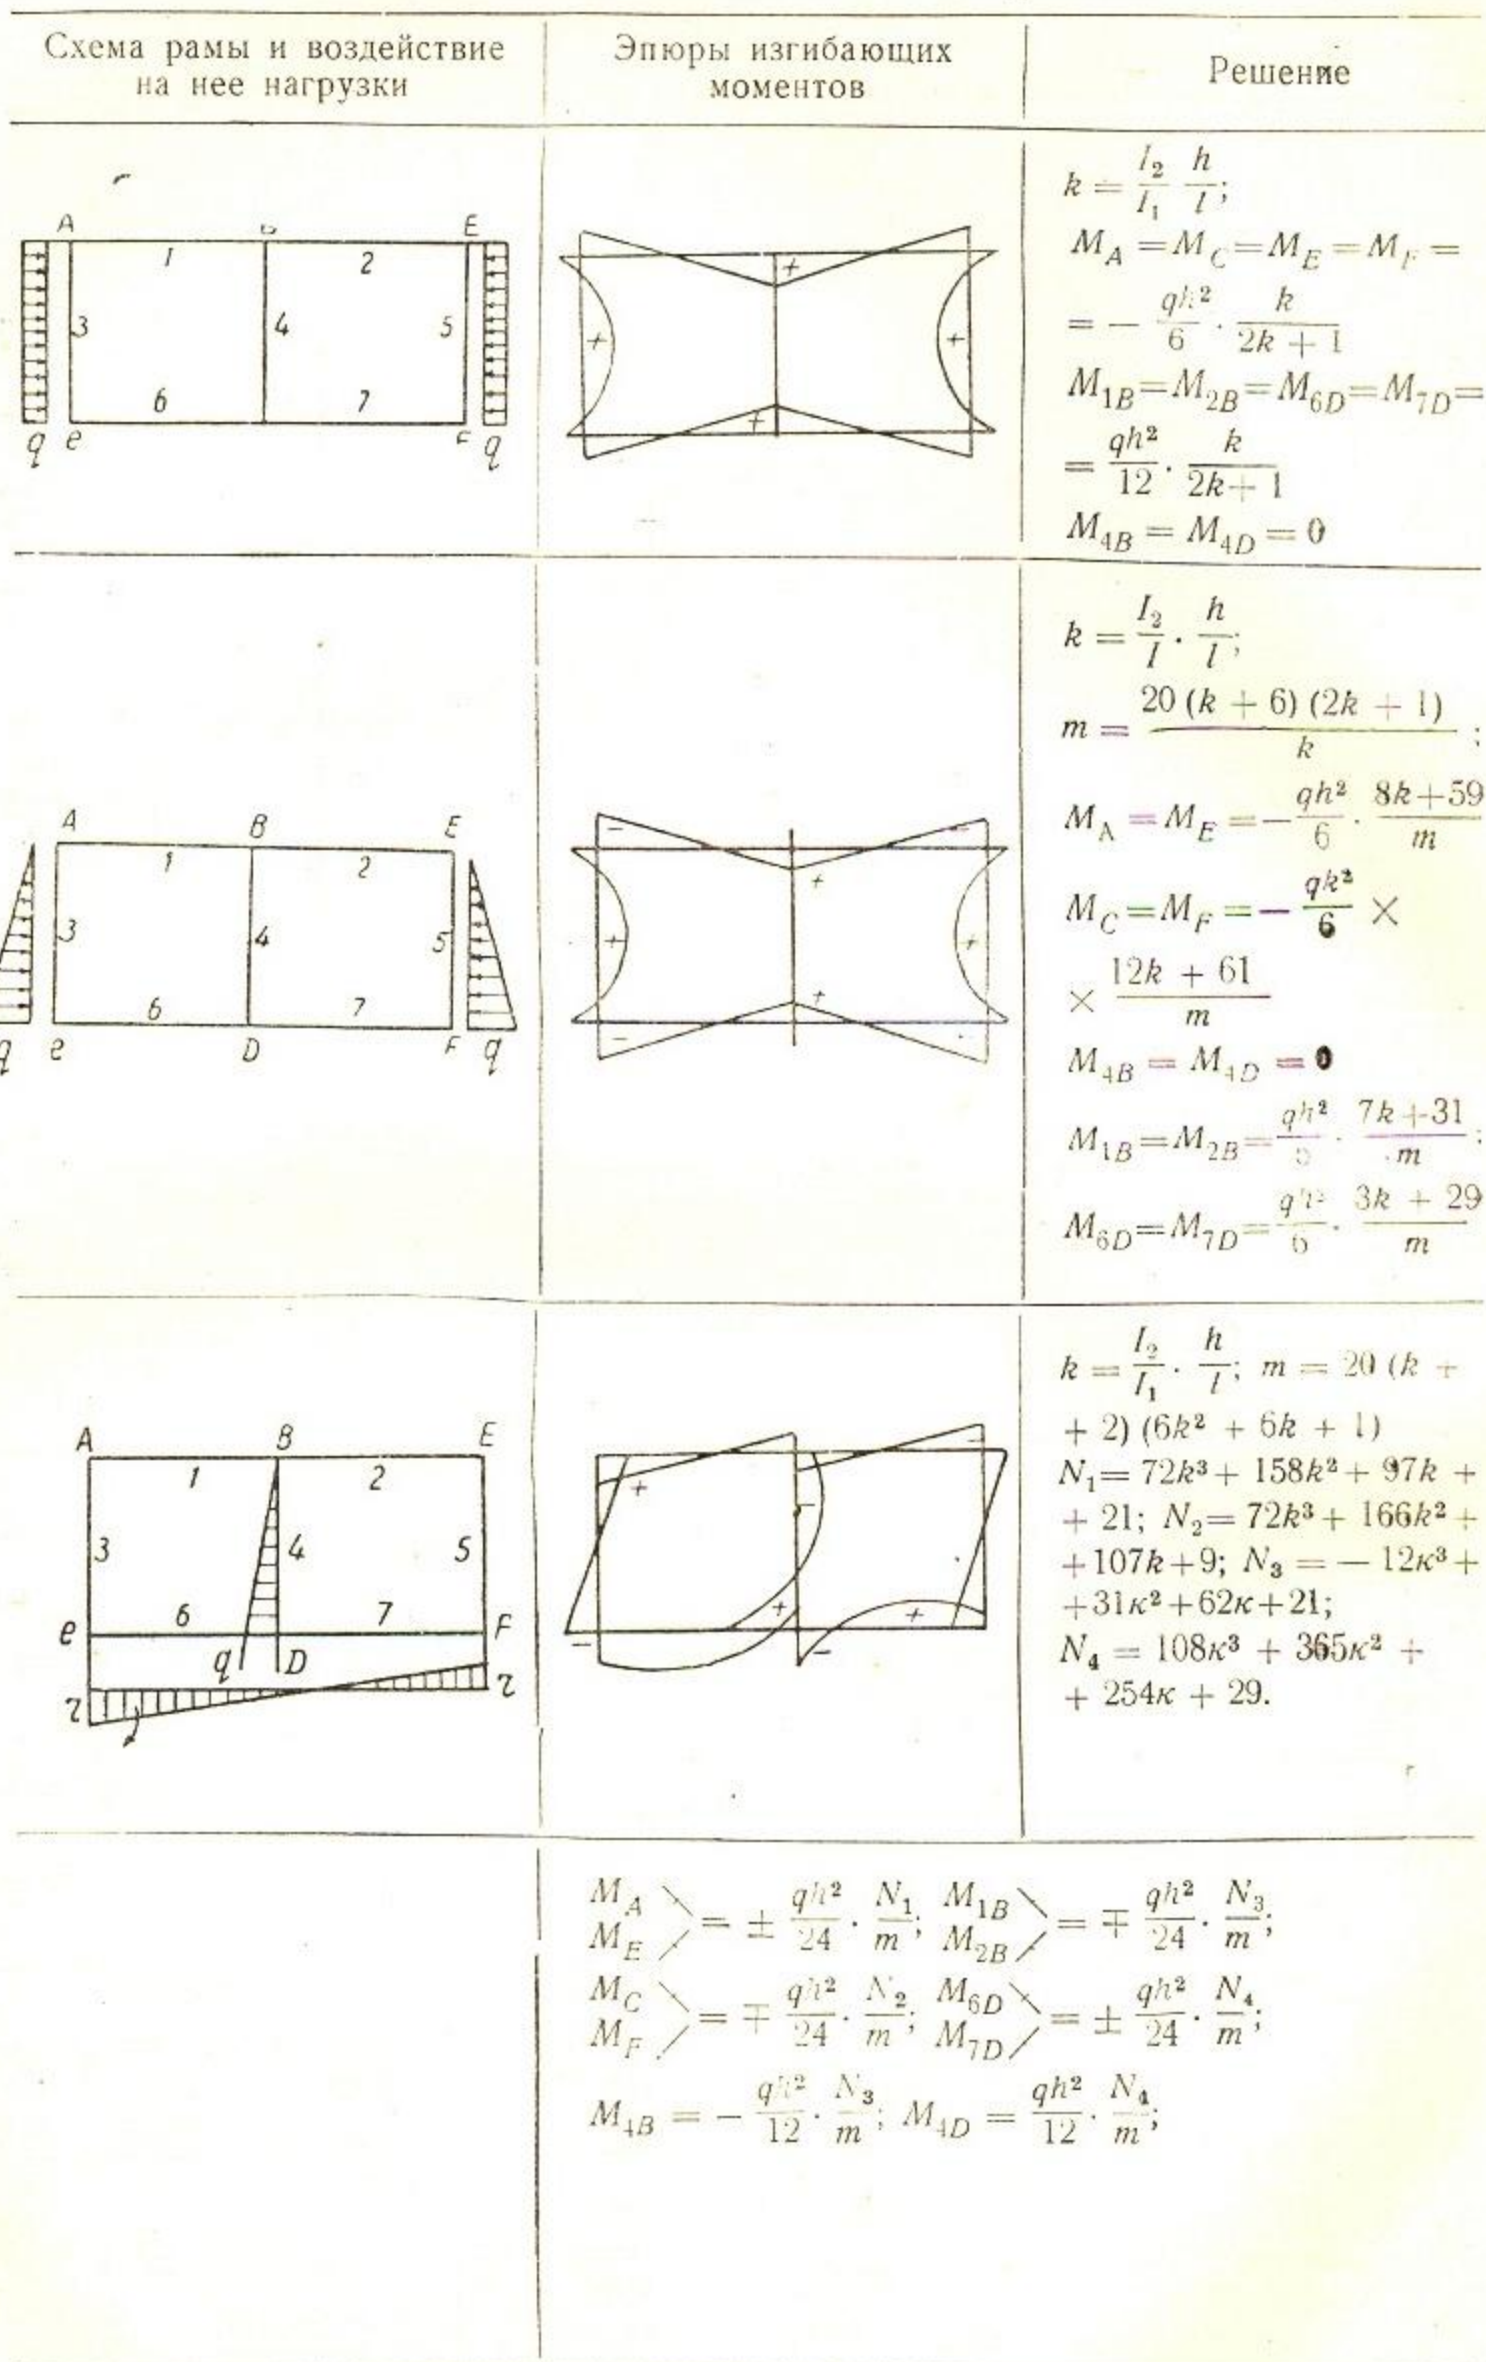 Схема рамы и воздействие
на нее нагрузки
Эпюры изгибающих
моментов
Решение
A E
1 2
3 4 5
6 7
q e F q
+ + + +
k = I₂/I₁ h/l;
M_A = M_C = M_E = M_F =
= − qh²/6 · k/(2k + 1)
M_1B = M_2B = M_6D = M_7D =
= qh²/12 · k/(2k + 1)
M_4B = M_4D = 0
A B E
1 2
3 4 5
6 7
q e D F q
− −
+
+ +
+
− −
k = I₂/I · h/l;
m = 20 (k + 6) (2k + 1)/k ;
M_A = M_E = − qh²/6 · (8k+59)/m
M_C = M_F = − qk²/6 ×
× (12k + 61)/m
M_4B = M_4D = 0
M_1B = M_2B = qh² · (7k+31)/m ;
M_6D = M_7D = qh²/6 · (3k + 29)/m
A B E
1 2
3 4 5
e 6 7 F
q D
r r
+ − −
+ +
− −
k = I₂/I₁ · h/l; m = 20 (k +
+ 2) (6k² + 6k + 1)
N₁ = 72k³ + 158k² + 97k +
+ 21; N₂ = 72k³ + 166k² +
+107k+9; N₃ = − 12к³ +
+31к²+62к+21;
N₄ = 108к³ + 365к² +
+ 254к + 29.
M_A M_E = ± qh²/24 · N₁/m; M_1B M_2B = ∓ qh²/24 · N₃/m;
M_C M_F = ∓ qh²/24 · N₂/m; M_6D M_7D = ± qh²/24 · N₄/m;
M_4B = − qh²/12 · N₃/m; M_4D = qh²/12 · N₄/m;